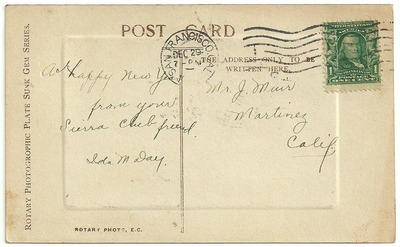 POST CARD
SAN FRANCISCO, CAL.
DEC 29
7 - PM
THE ADDRESS ONLY TO BE
WRITTEN HERE.
A Happy New Year
from your
Sierra Club friend,
Ida M. Day.
Mr. J. Muir
Martinez
Calif.
ROTARY PHOTOGRAPHIC PLATE SUNK GEM SERIES.
ROTARY PHOTO, E.C.